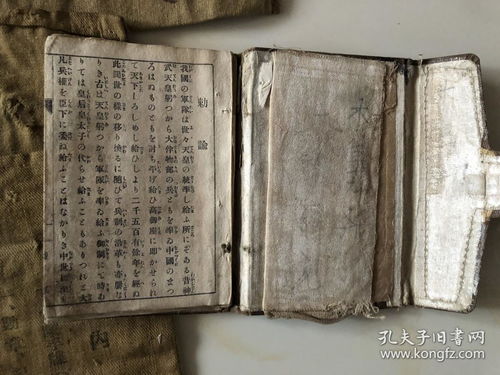 勅諭
我國の軍隊は世々天皇の統率し給ふ所にそある昔神
武天皇躬つから大伴物部の兵ともを率ゐ中國のまつ
ろはぬものともを討ち平け給ひ高御座に即かせられ
て天下しろしめし給ひしより二千五百有餘年を經ぬ
此間世の樣の移り換るに隨ひて兵制の沿革も亦屢な
りき古は天皇躬つから軍隊を率ゐ給ふ御制にて時あ
りては皇后皇太子の代らせ給ふこともありつれと大
凡兵權を臣下に委ね給ふことはなかりき中世に至り
内
孔夫子旧书网
www.kongfz.com